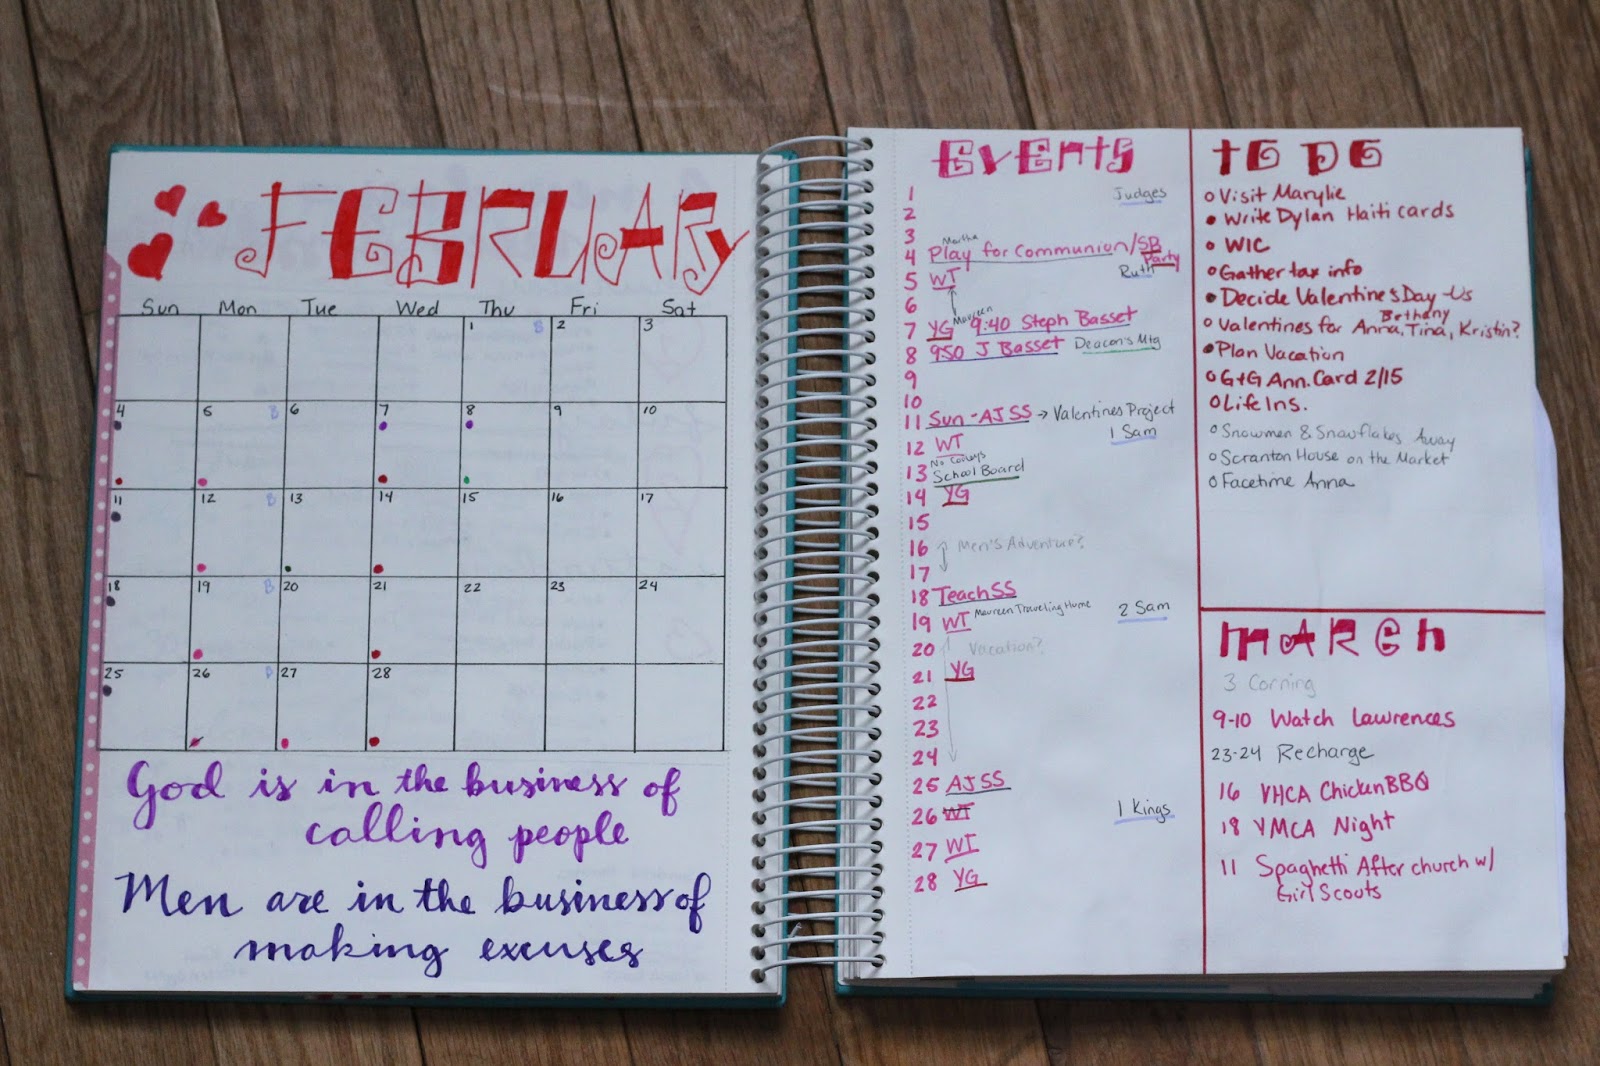 FEBRUARY
Sun Mon Tue Wed Thu Fri Sat
1 B 2 3
4 5 B 6 7 8 9 10
11 12 B 13 14 15 16 17
18 19 B 20 21 22 23 24
25 26 B 27 28
God is in the business of
calling people
Men are in the business of
making excuses
EVENTS
1 Judges
2
3
Martha
4 Play for Communion/SB Party
5 WT Ruth
6
Maureen
7 YG 9:40 Steph Basset
8 9:50 J Basset Deacon's Mtg
9
10
11 Sun - AJSS → Valentines Project
12 WT 1 Sam
No Conleys
13 School Board
14 YG
15
16 Men's Adventure?
17
18 Teach SS
19 WT Maureen Traveling Home 2 Sam
20 Vacation?
21 YG
22
23
24
25 AJSS
26 WT 1 Kings
27 WT
28 YG
TO DO
Visit Marylie
Write Dylan Haiti cards
WIC
Gather tax info
Decide Valentine's Day - Us
Bethany
Valentines for Anna, Tina, Kristin?
Plan Vacation
G+G Ann. Card 2/15
Life Ins.
Snowmen & Snowflakes Away
Scranton House on the Market
Facetime Anna
MARCH
3 Corning
9-10 Watch Lawrences
23-24 Recharge
16 VHCA Chicken BBQ
18 YMCA Night
11 Spaghetti After church w/
Girl Scouts